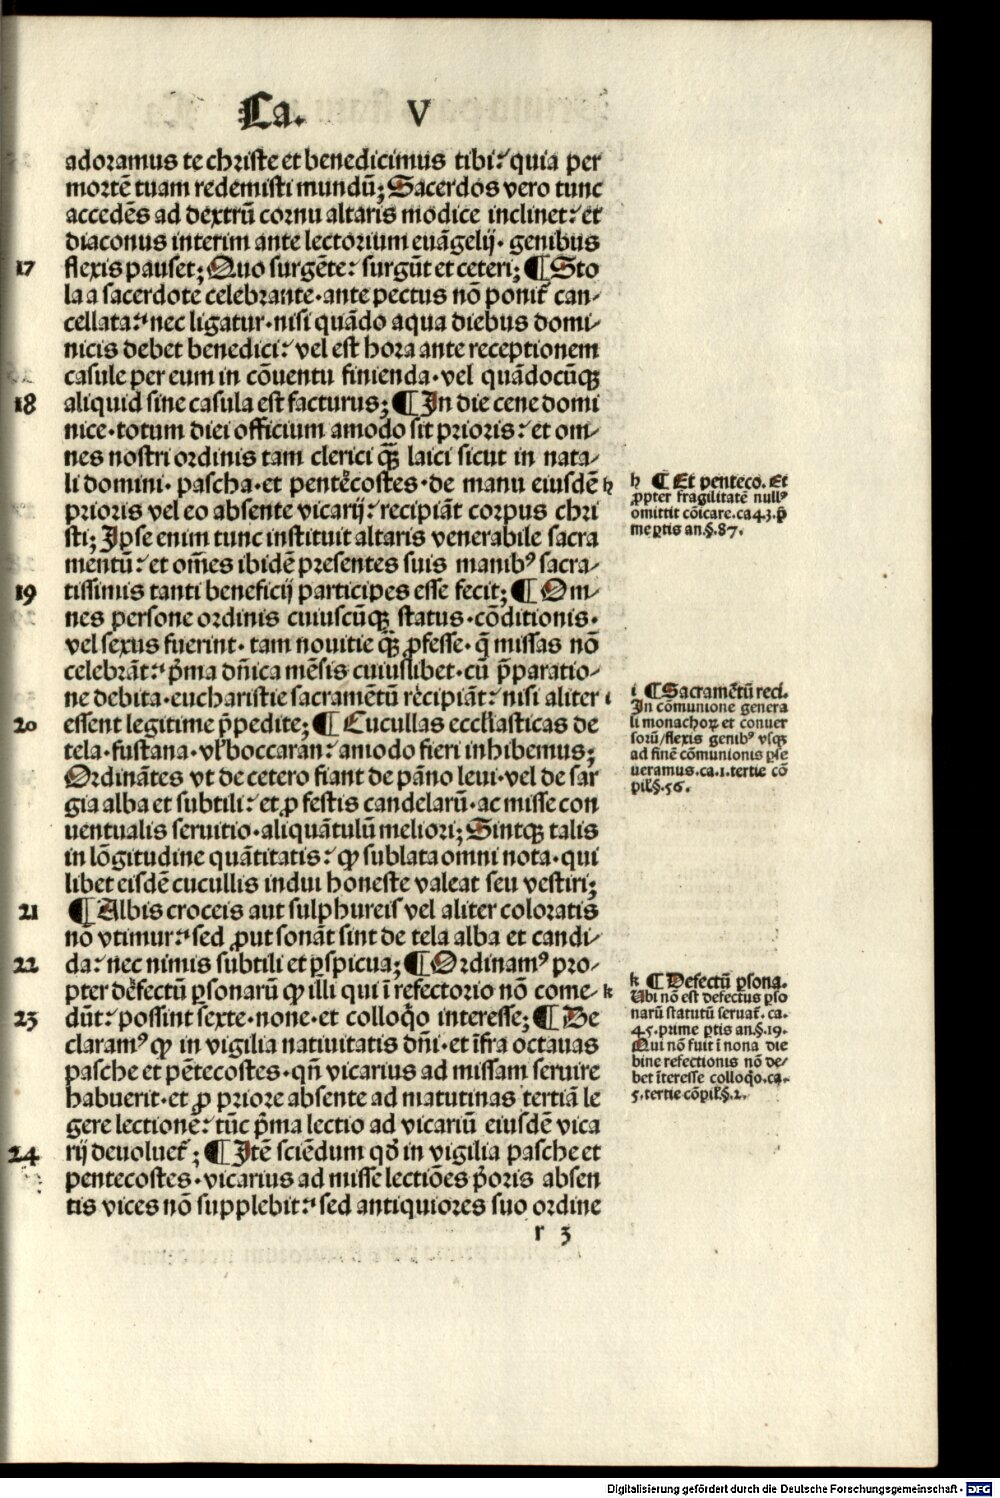 Ca. V
adoramus te christe et benedicimus tibi: quia per
mortē tuam redemisti mundū; Sacerdos vero tunc
accedēs ad dextrū cornu altaris modice inclinet: et
diaconus interim ante lectorium euāgelij· genibus
17 flexis pauset; Quo surgēte: surgūt et ceteri; ¶ Sto
la a sacerdote celebrante·ante pectus nō ponit̄ can/
cellata: nec ligatur·nisi quādo aqua diebus domi/
nicis debet benedici: vel est hora ante receptionem
casule per eum in cōuentu finienda·vel quādocūqꝫ
18 aliquid sine casula est facturus; ¶ In die cene domi
nice·totum diei officium amodo sit prioris: et om/
nes nostri ordinis tam clerici qꝫ̄ laici sicut in nata/
li domini· pascha·et pentēcostes·de manu eiusdē h
prioris vel eo absente vicarij: recipiāt corpus chri
sti; Ipse enim tunc instituit altaris venerabile sacra
mentū: et om̄es ibidē presentes suis manibꝰ sacra/
19 tissimis tanti beneficij participes esse fecit; ¶ Om/
nes persone ordinis cuiuscūqꝫ status·cōditionis·
vel sexus fuerint· tam nouitie qꝫ̄ ꝓfesse·q̄ missas nō
celebrāt: p̄ma dn̄ica mēsis cuiuslibet·cū p̄paratio/
ne debita·eucharistie sacramētū recipiāt: nisi aliter i
20 essent legitime p̄pedite; ¶ Cucullas eccl̄iasticas de
tela·fustana·vl̄ boccaran: amodo fieri inhibemus;
Ordinātes vt de cetero fiant de pāno leui·vel de sar
gia alba et subtili: et ꝓ festis candelarū·ac misse con
uentualis seruitio·aliquātulū meliori; Sintqꝫ talis
in lōgitudine quātitatis: ꝙ sublata omni nota·qui
libet eisdē cucullis indui honeste valeat seu vestiri;
21 ¶ Albis croceis aut sulphureis vel aliter coloratis
nō vtimur: sed ꝓut sonāt sint de tela alba et candi/
22 da: nec nimis subtili et ꝑspicua; ¶ Ordinamꝰ pro/
pter dēfectū ꝑsonarū ꝙ illi qui ī refectorio nō come/ k
23 dūt: possint sexte·none·et colloq̄o interesse; ¶ De
claramꝰ ꝙ in vigilia natiuitatis dn̄i·et īfra octauas
pasche et pētecostes·qn̄ vicarius ad missam seruire
habuerit·et ꝓ priore absente ad matutinas tertiā le
gere lectionē: tūc p̄ma lectio ad vicariū eiusdē vica
24 rij deuoluet̄ ; ¶ Itē sciēdum qd̄ in vigilia pasche et
pentecostes·vicarius ad misse lectiōes p̄oris absen
tis vices nō supplebit: sed antiquiores suo ordine
r 3
h ¶ Et penteco. Et
ꝓpter fragilitatē nullꝰ
omittit cōicare. ca 43. p̄
me ꝑtis an.§.87.
i ¶ Sacramētū reci.
In cōmunione genera
li monachoꝝ et conuer
sorū/flexis genibꝰ vsqꝫ
ad finē cōmunionis ꝑse
ueramus. ca. 1. tertie cō
pil§.56.
k ¶ Defectū ꝑsona.
Ubi nō est defectus ꝑso
narū statutū seruat̄. ca.
45. prime ꝑtis an.§.19.
Qui nō fuit ī nona die
bine refectionis nō de/
bet īteresse colloq̄o. ca.
5. tertie cōpil§.2.
Digitalisierung gefördert durch die Deutsche Forschungsgemeinschaft · DFG